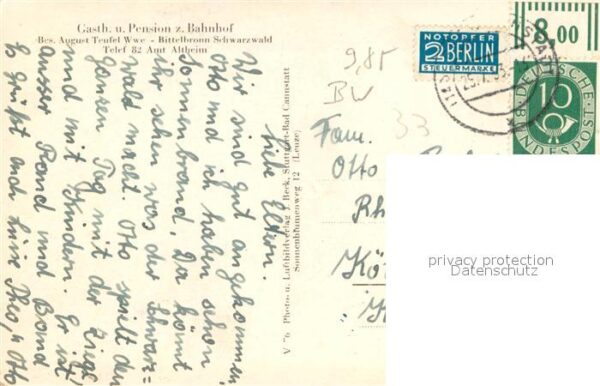 Gasth. u. Pension z. Bahnhof
Bes. August Teufel Wwe - Bittelbronn Schwarzwald
Telef 82 Amt Altheim
Liebe Eltern.
Wir sind gut angekommen
Otto und ich haben schon
Sonnenbrand. Da könnt
ihr sehen was der Schwarz=
wald macht. Otto spielt den
ganzen Tag mit der Ziege
und mit Kindern. Er ist
ausser Rand und Band
Es grüßt und Otto
V
Photo- u. Luftbildverlag J. Beck, Stuttgart-Bad Cannstatt
Sonnenblumenweg 12 (Leuze)
9,85
BW
33
NOTOPFER
2 BERLIN
STEUERMARKE
8.00
10
DEUTSCHE
BUNDESPOST
Fam.
Otto
Rh
Kö
privacy protection
Datenschutz